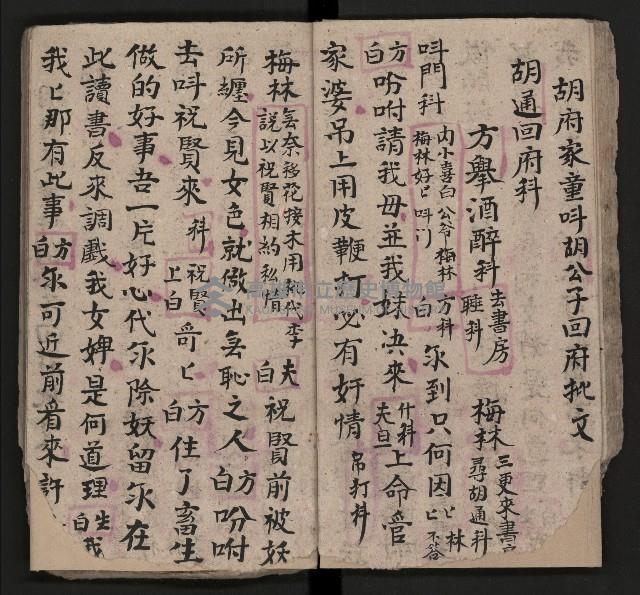 胡府家童呌胡公子回府批文
胡通回府科
方舉酒醉科 去書房 睡科 梅林 三更來書房 尋胡通科
呌門科 内小喜白公爷梅林 梅林好匕呌门 方科 白 尔到只何因匕 林匕不答
方白 吩咐請我母並我妹决來 什科 夫旦 上命管
家婆吊上用皮鞭打必有奸情 吊打科
梅林 無奈移花接木用桃代李 說以祝賢相約私情 夫白 祝賢前被妖
所纏今見女色就做出無恥之人 方白 吩咐
去呌祝賢來 科 祝賢上白 哥匕 方白 住了畜生
做的好事吾一片好心代尔除妖留尔在
此讀書反來調戲我女婢是何道理 生白 我
我匕那有此事 方白 尔可近前看來許
高雄市立歷史博物館